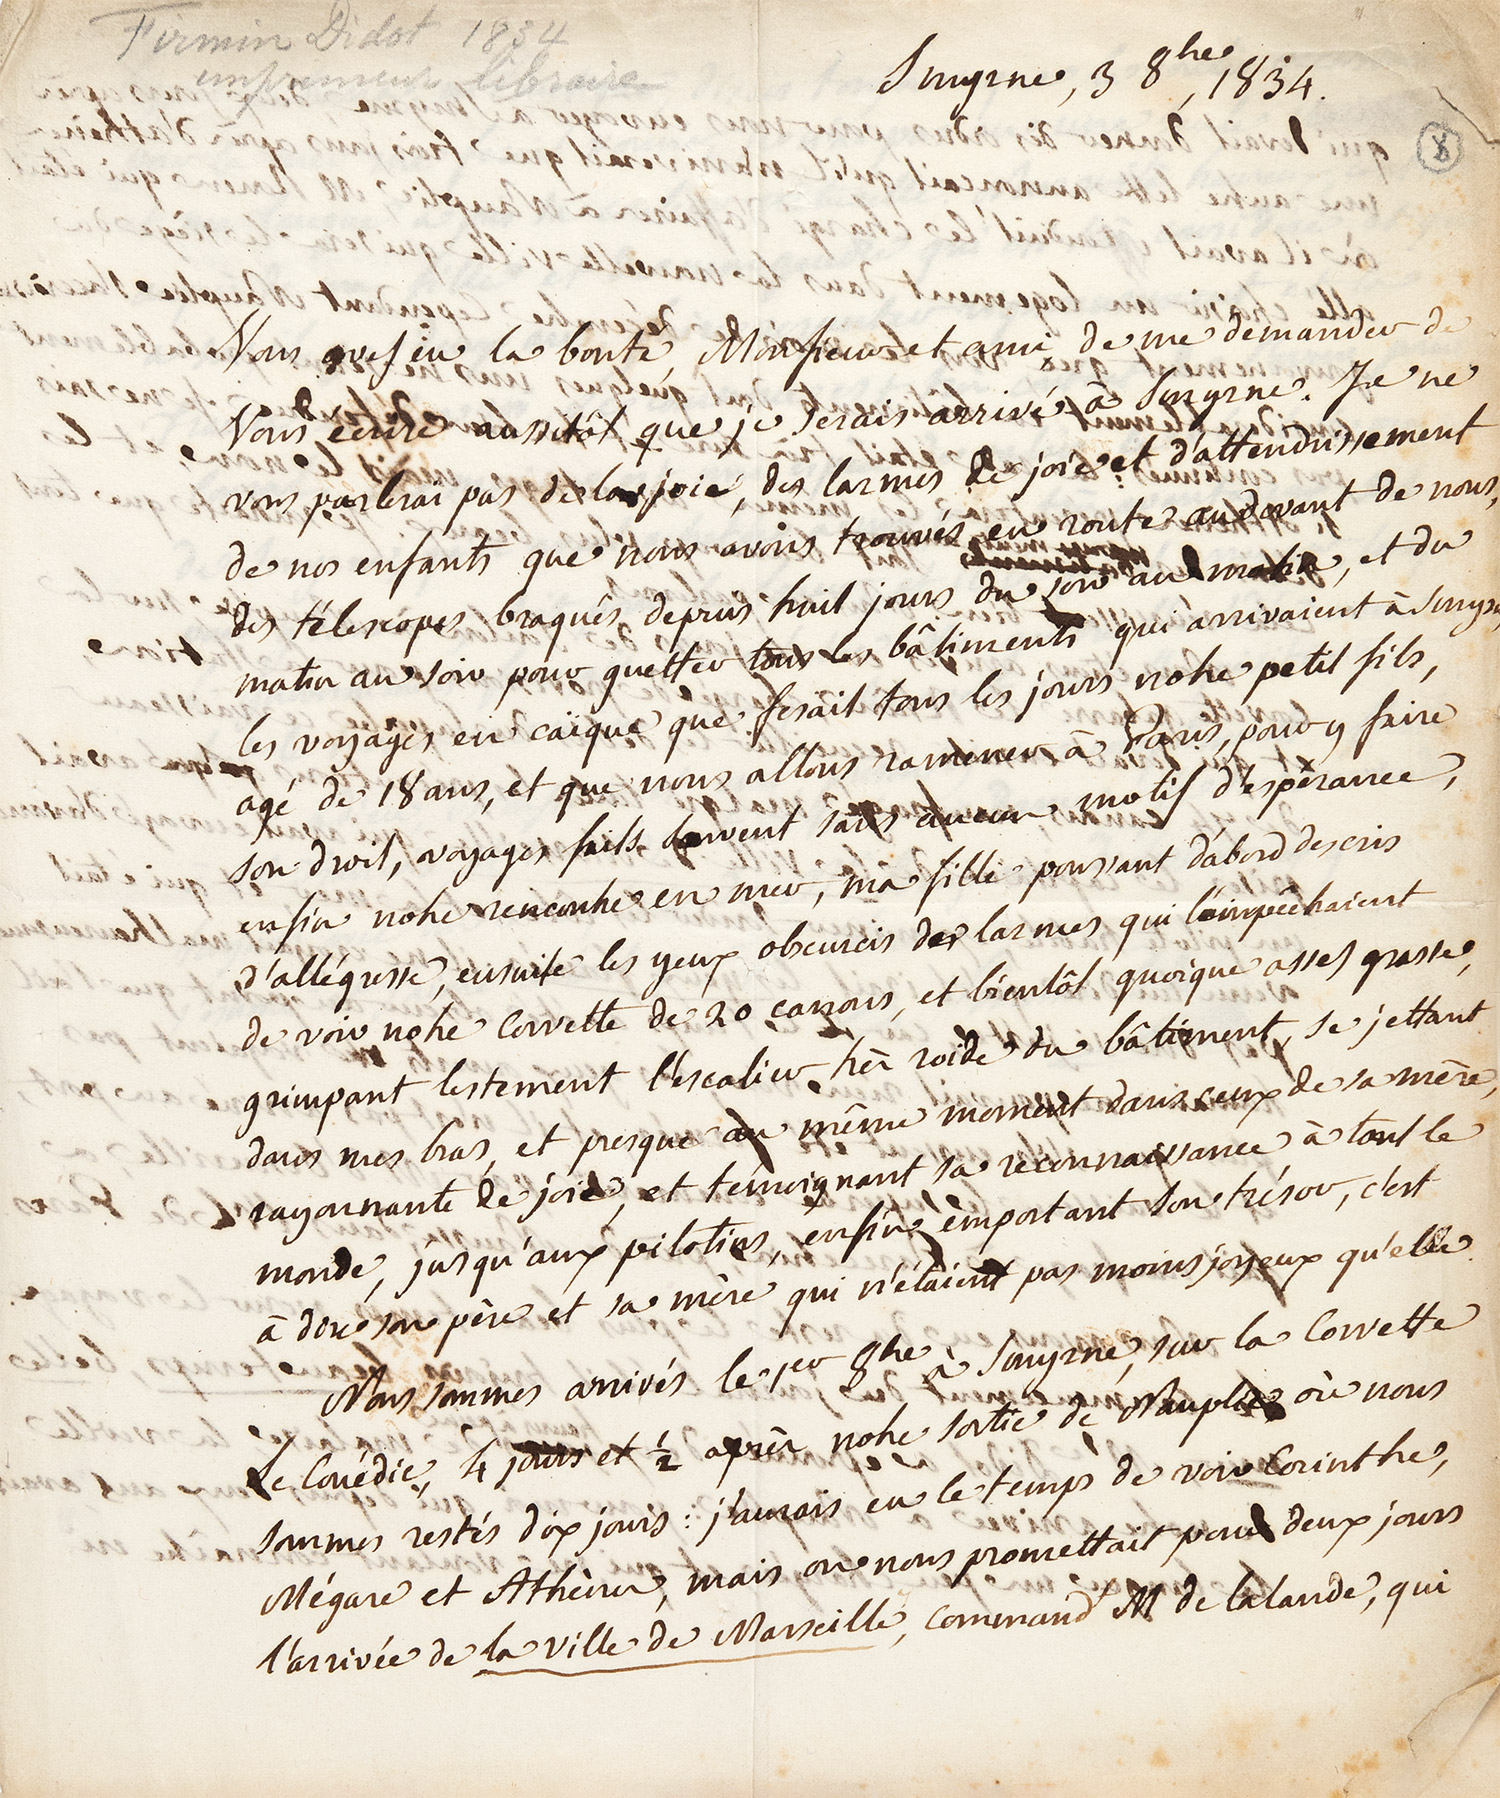 Firmin Didot 1834
imprimeur libraire
Smyrne, 3 8bre, 1834.
8
Vous avez eu la bonté, Monsieur et ami, de me demander de
vous écrire aussitôt que je serais arrivé à Smyrne. Je ne
vous parlerai pas de la joie, des larmes de joie et d'attendrissement
de nos enfants que nous avons trouvés en route au devant de nous,
des télescopes braqués depuis huit jours du soir au matin, et du
matin au soir pour guetter tous les bâtiments qui arrivaient à Smyrne
les voyages en caïque que fesait tous les jours notre petit fils,
agé de 18 ans, et que nous allons ramener à Paris, pour y faire
son droit, voyages faits souvent sans aucun motif d'espérance,
enfin notre rencontre en mer, ma fille poussant d'abord des cris
d'allégresse, ensuite les yeux obscurcis des larmes qui l'empêchaient
de voir notre corvette de 20 canons, et bientôt quoique assez grasse,
grimpant lestement l'escalier très roide du bâtiment, se jettant
dans mes bras, et presque au même moment dans ceux de sa mère,
rayonnante de joie, et témoignant sa reconnaissance à tout le
monde, jusqu'aux pilotins, enfin emportant son trésor, c'est
à dire son père et sa mère qui n'étaient pas moins joyeux qu'elle.
Nous sommes arrivés le 1er 8bre à Smyrne, sur la Corvette
Le Couëdic, 4 jours et ½ après notre sortie de Nauplie où nous
sommes restés dix jours : j'aurais eu le temps de voir Corinthe,
Mégare et Athènes, mais on nous promettait pour deux jours
l'arrivée de la ville de Marseille, command<sup>t</sup> M de Lalande, qui